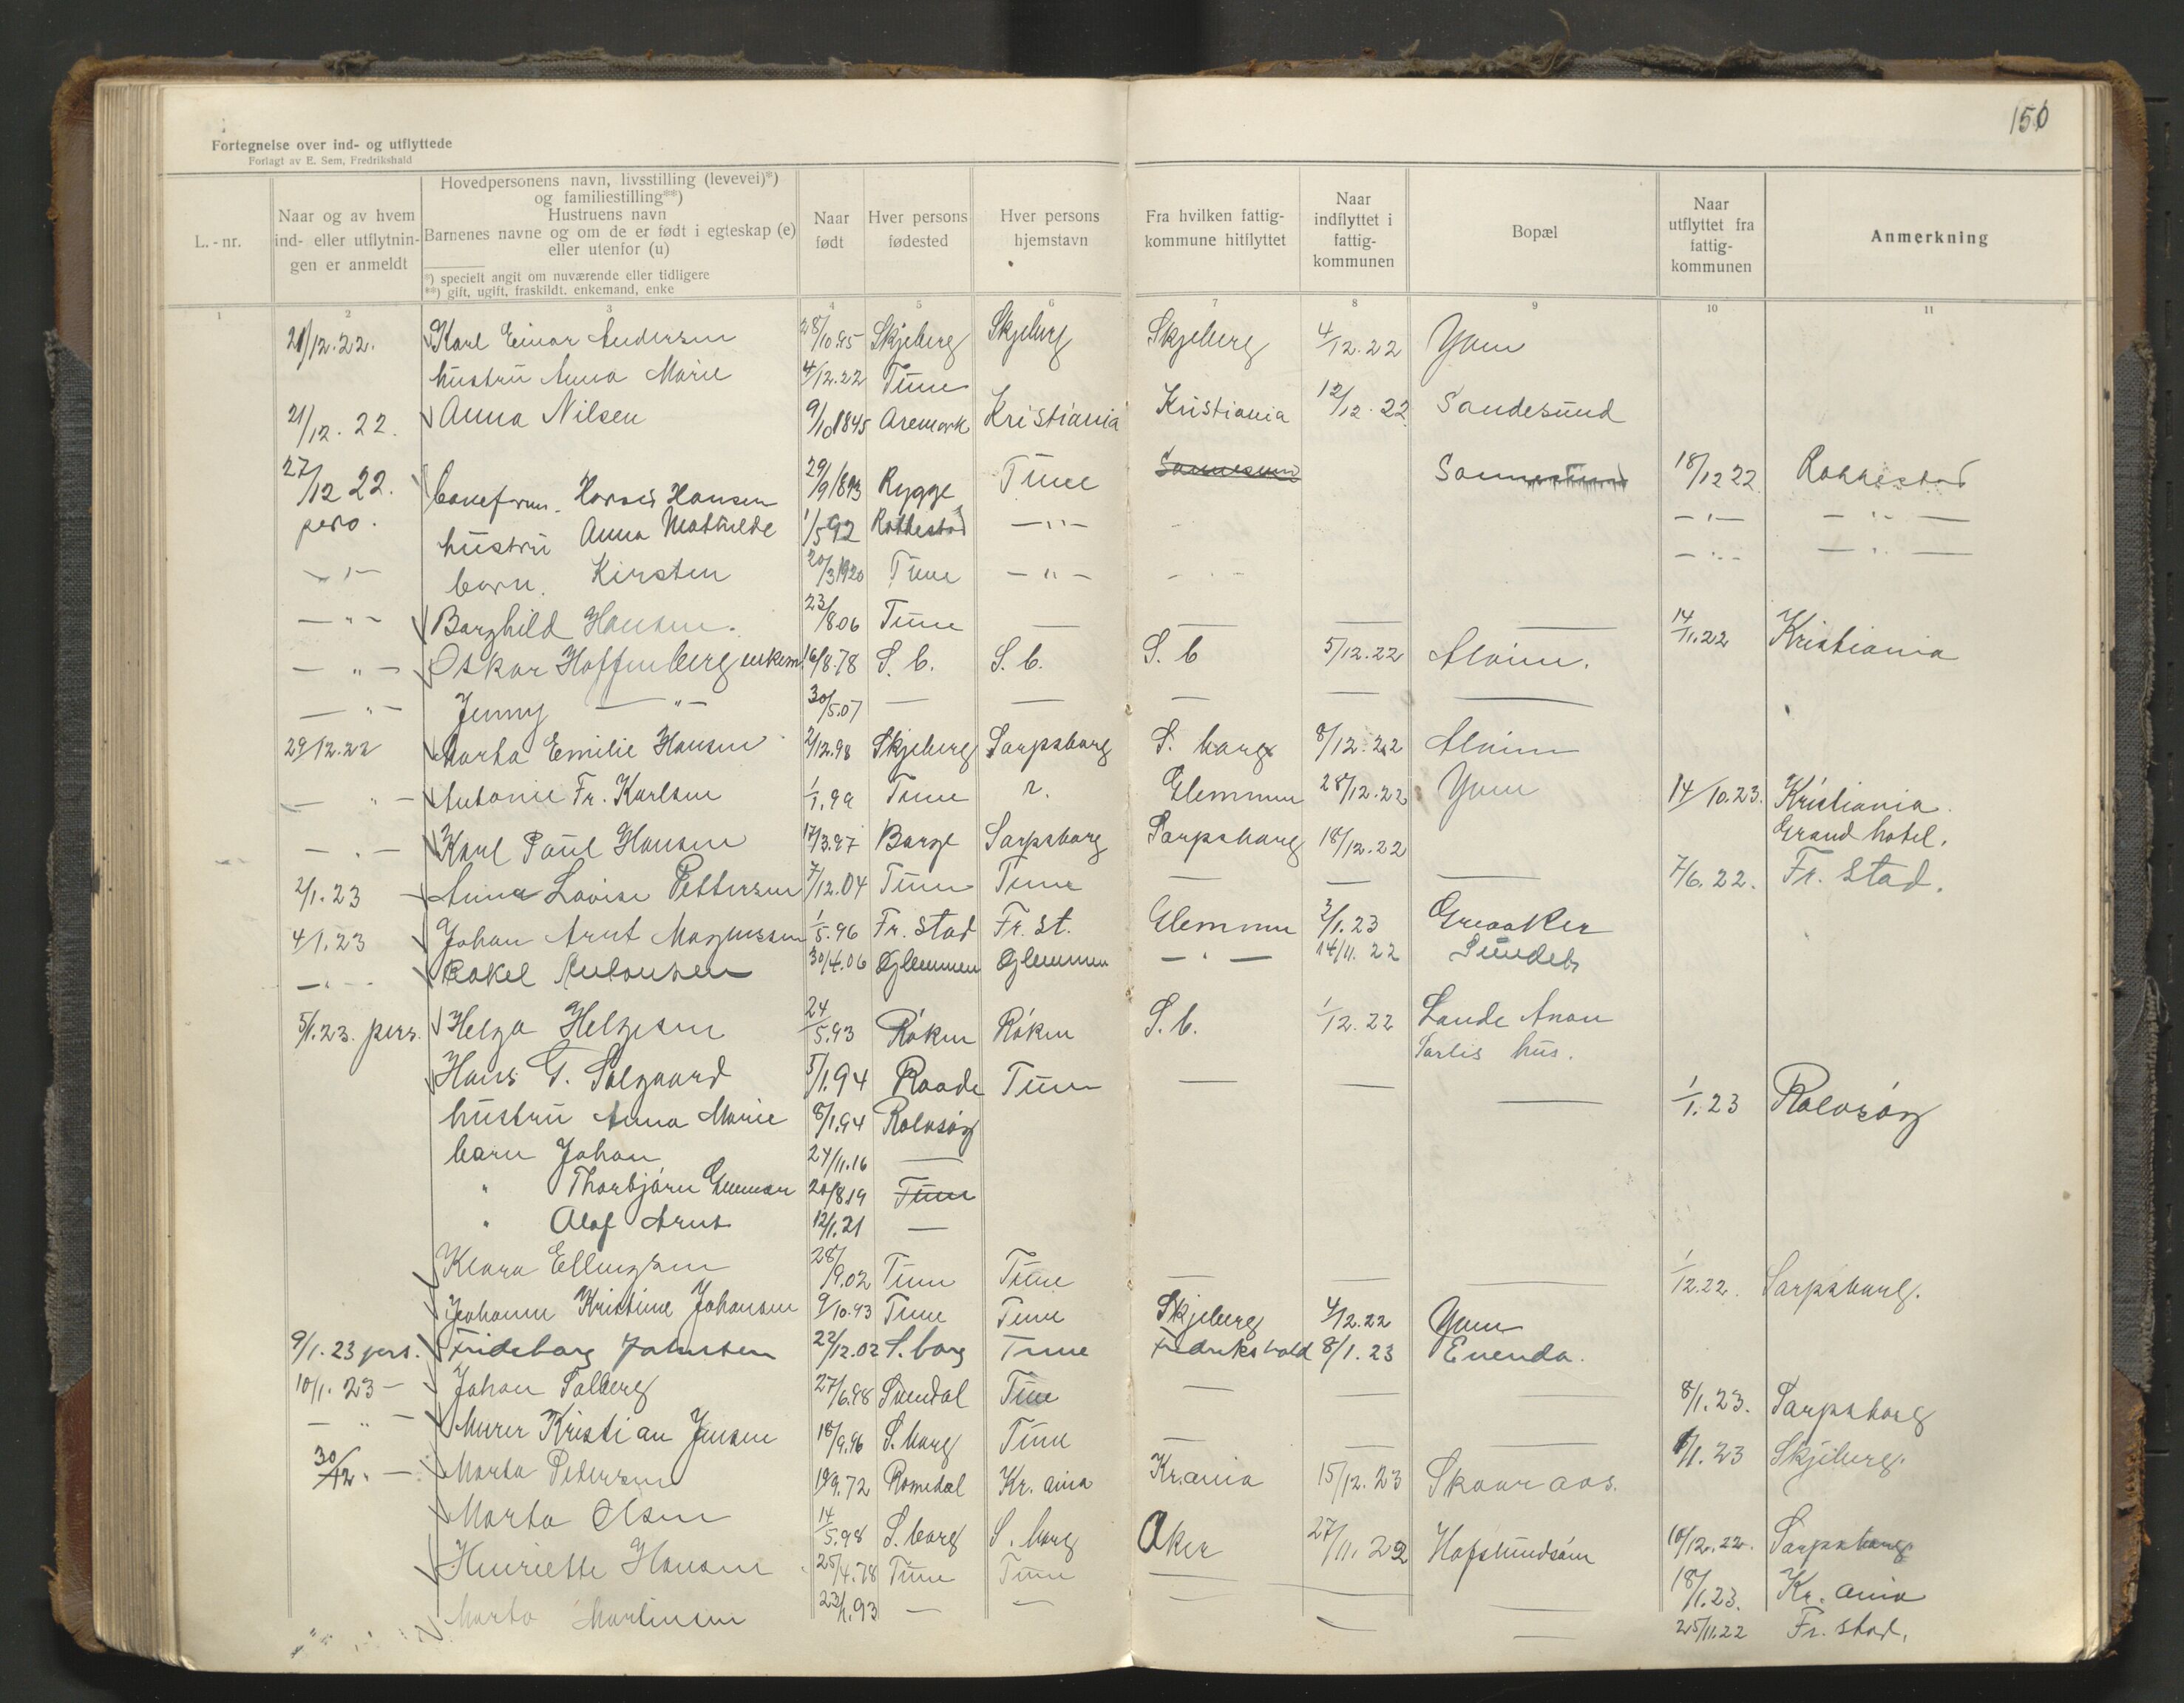 150
Fortegnelse over ind- og utflyttede
Forlagt av E. Sem, Fredrikshald
L.-nr.
Naar og av hvem
ind- eller utflytnin-
gen er anmeldt
Hovedpersonens navn, livsstilling (levevei)*)
og familiestilling**)
Hustruens navn
Barnenes navne og om de er født i egteskap (e)
eller utenfor (u)
*) specielt angit om nuværende eller tidligere
**) gift, ugift, fraskildt, enkemand, enke
Naar
født
Hver persons
fødested
Hver persons
hjemstavn
Fra hvilken fattig-
kommune hitflyttet
Naar
indflyttet i
fattig-
kommunen
Bopæl
Naar
utflyttet fra
fattig-
kommunen
Anmerkning
1 2 3 4 5 6 7 8 9 10 11
21/12.22. Karl Einar Andersen 28/10.95 Skjeberg Skjeberg Skjeberg 4/12.22 Yven
hustru Anna Marie 4/12.22 Tune
21/12.22. Anna Nilsen 9/10 1845 Aremark Kristiania Kristiania 12/12.22 Sandesund
27/12 22. Hansen 29/9 1893 Rygge Tune 18/12 22 Rakkestad
pers. hustru Anna Mathilde 1/5 92 Rakkestad —"— —"— —"—
—"— barn. Kirsten 20/3 1920 Tune —"— —"— —"—
—"— Borghild Hansen. 23/8 06 Tune — — — — 14/11.22 Kristiania
—"— Oskar Hoffenberg enkem. 16/8.78 S.b. S.b. S.b 5/12.22 Alvim.
—"— Jenny —"— 30/5.07 — — — — —
29/12.22 Marta Emilie Hansen 2/12.98 Skjeberg Sarpsborg S. borg 8/12.22 Alvim
—"— Antonie Fr. Karlsen 1/1.99 Tune Glemmen 28/12.22 Yven 14/10.23. Kristiania
Grand hotel.
—"— Karl Paul Hansen 17/3.97 Borge Sarpsborg Sarpsborg 18/12.22
2/1.23 — Anna Lovise Pettersen 7/12.04 Tune Tune — — — 7/6.22. Fr. stad.
4/1.23 Johan Arnt Magnussen 1/5.96 Fr. stad Fr. st. Glemmen 2/1.23 Greaaker
—"— Rakel Antonsen 30/4.06 Glemmen Glemmen —"— 14/11.22
5/1.23. pers. Helga Helgesen 24/5.93 Röken Röken S.b. 1/12.22 Lande
hus.
Hans G. Solgaard 5/1.94 Raade Tune — — — 1/1.23 Rolvsöy
hustru Anna Marie 8/1.94 Rolvsöy
barn Johan 24/11.16 —
" Thorbjörn Gunnar 20/8.19 Tune
" Olaf Arnt 12/1.21 —
Klara Ellingsen 28/9.02 Tune Tune — — — 1/12.22. Sarpsborg.
Johanne Kristine Johansen 9/10.93 Tune Tune Skjeberg 4/12.22 Yven
9/1.23 pers. Frideborg Johnsen 22/12.02 S.borg Tune Fredrikshald 8/1.23 Enenda.
10/1.23 — Johan Solberg 27/6.88 Tune — — — 8/1.23. Sarpsborg
—"— Murer Kristian Jensen 18/9.96 S.borg Tune — — — 8/1.23 Skjeberg.
30/12. — Marta Petersen 19/9.72 Romedal Kr.ania Kr.ania 15/12.23
Marta Olsen 14/5.98 S.borg S.borg Aker 27/11.22 Hafslundsöen 10/12.22. Sarpsborg
Henriette Hansen 25/4.78 Tune Tune — — — 18/1.23. Kr.ania
Marta Martinsen 23/1.93 — — — — 25/11.22 Fr. stad.